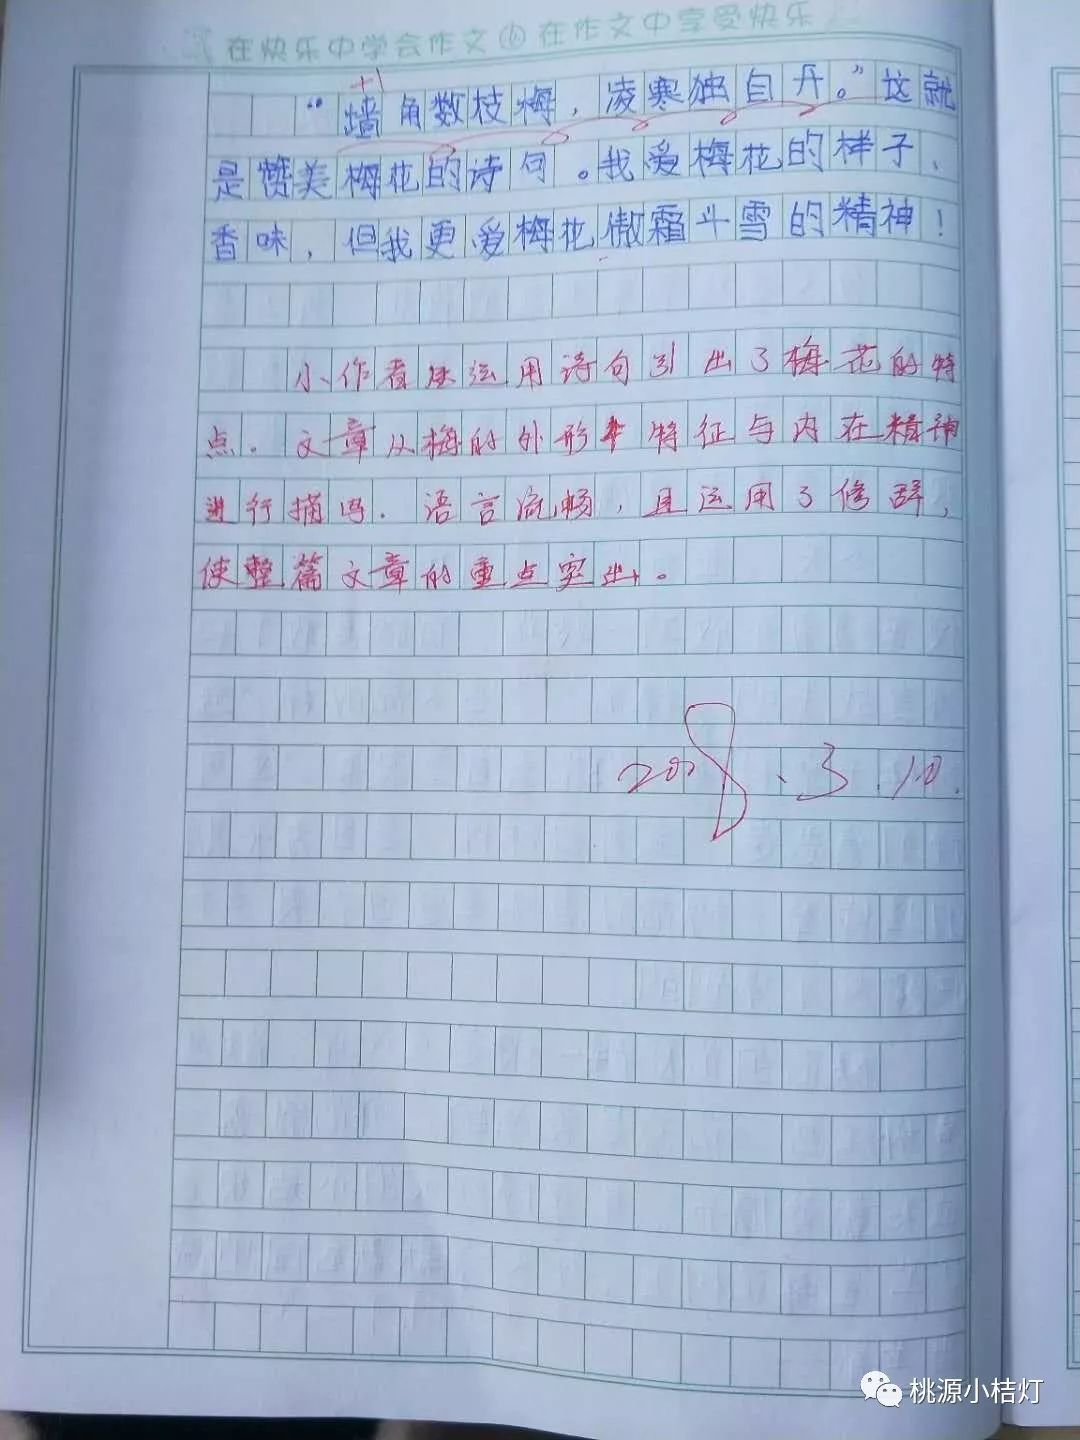 在快乐中学会作文 在作文中享受快乐
+1
“墙角数枝梅，凌寒独自开。”这就
是赞美梅花的诗句。我爱梅花的样子、
香味，但我更爱梅花傲霜斗雪的精神！
小作者运用诗句引出了梅花的特
点．文章从梅的外形特征与内在精神
进行描写．语言流畅，且运用了修辞，
使整篇文章的重点突出。
2018、3.10.
桃源小桔灯